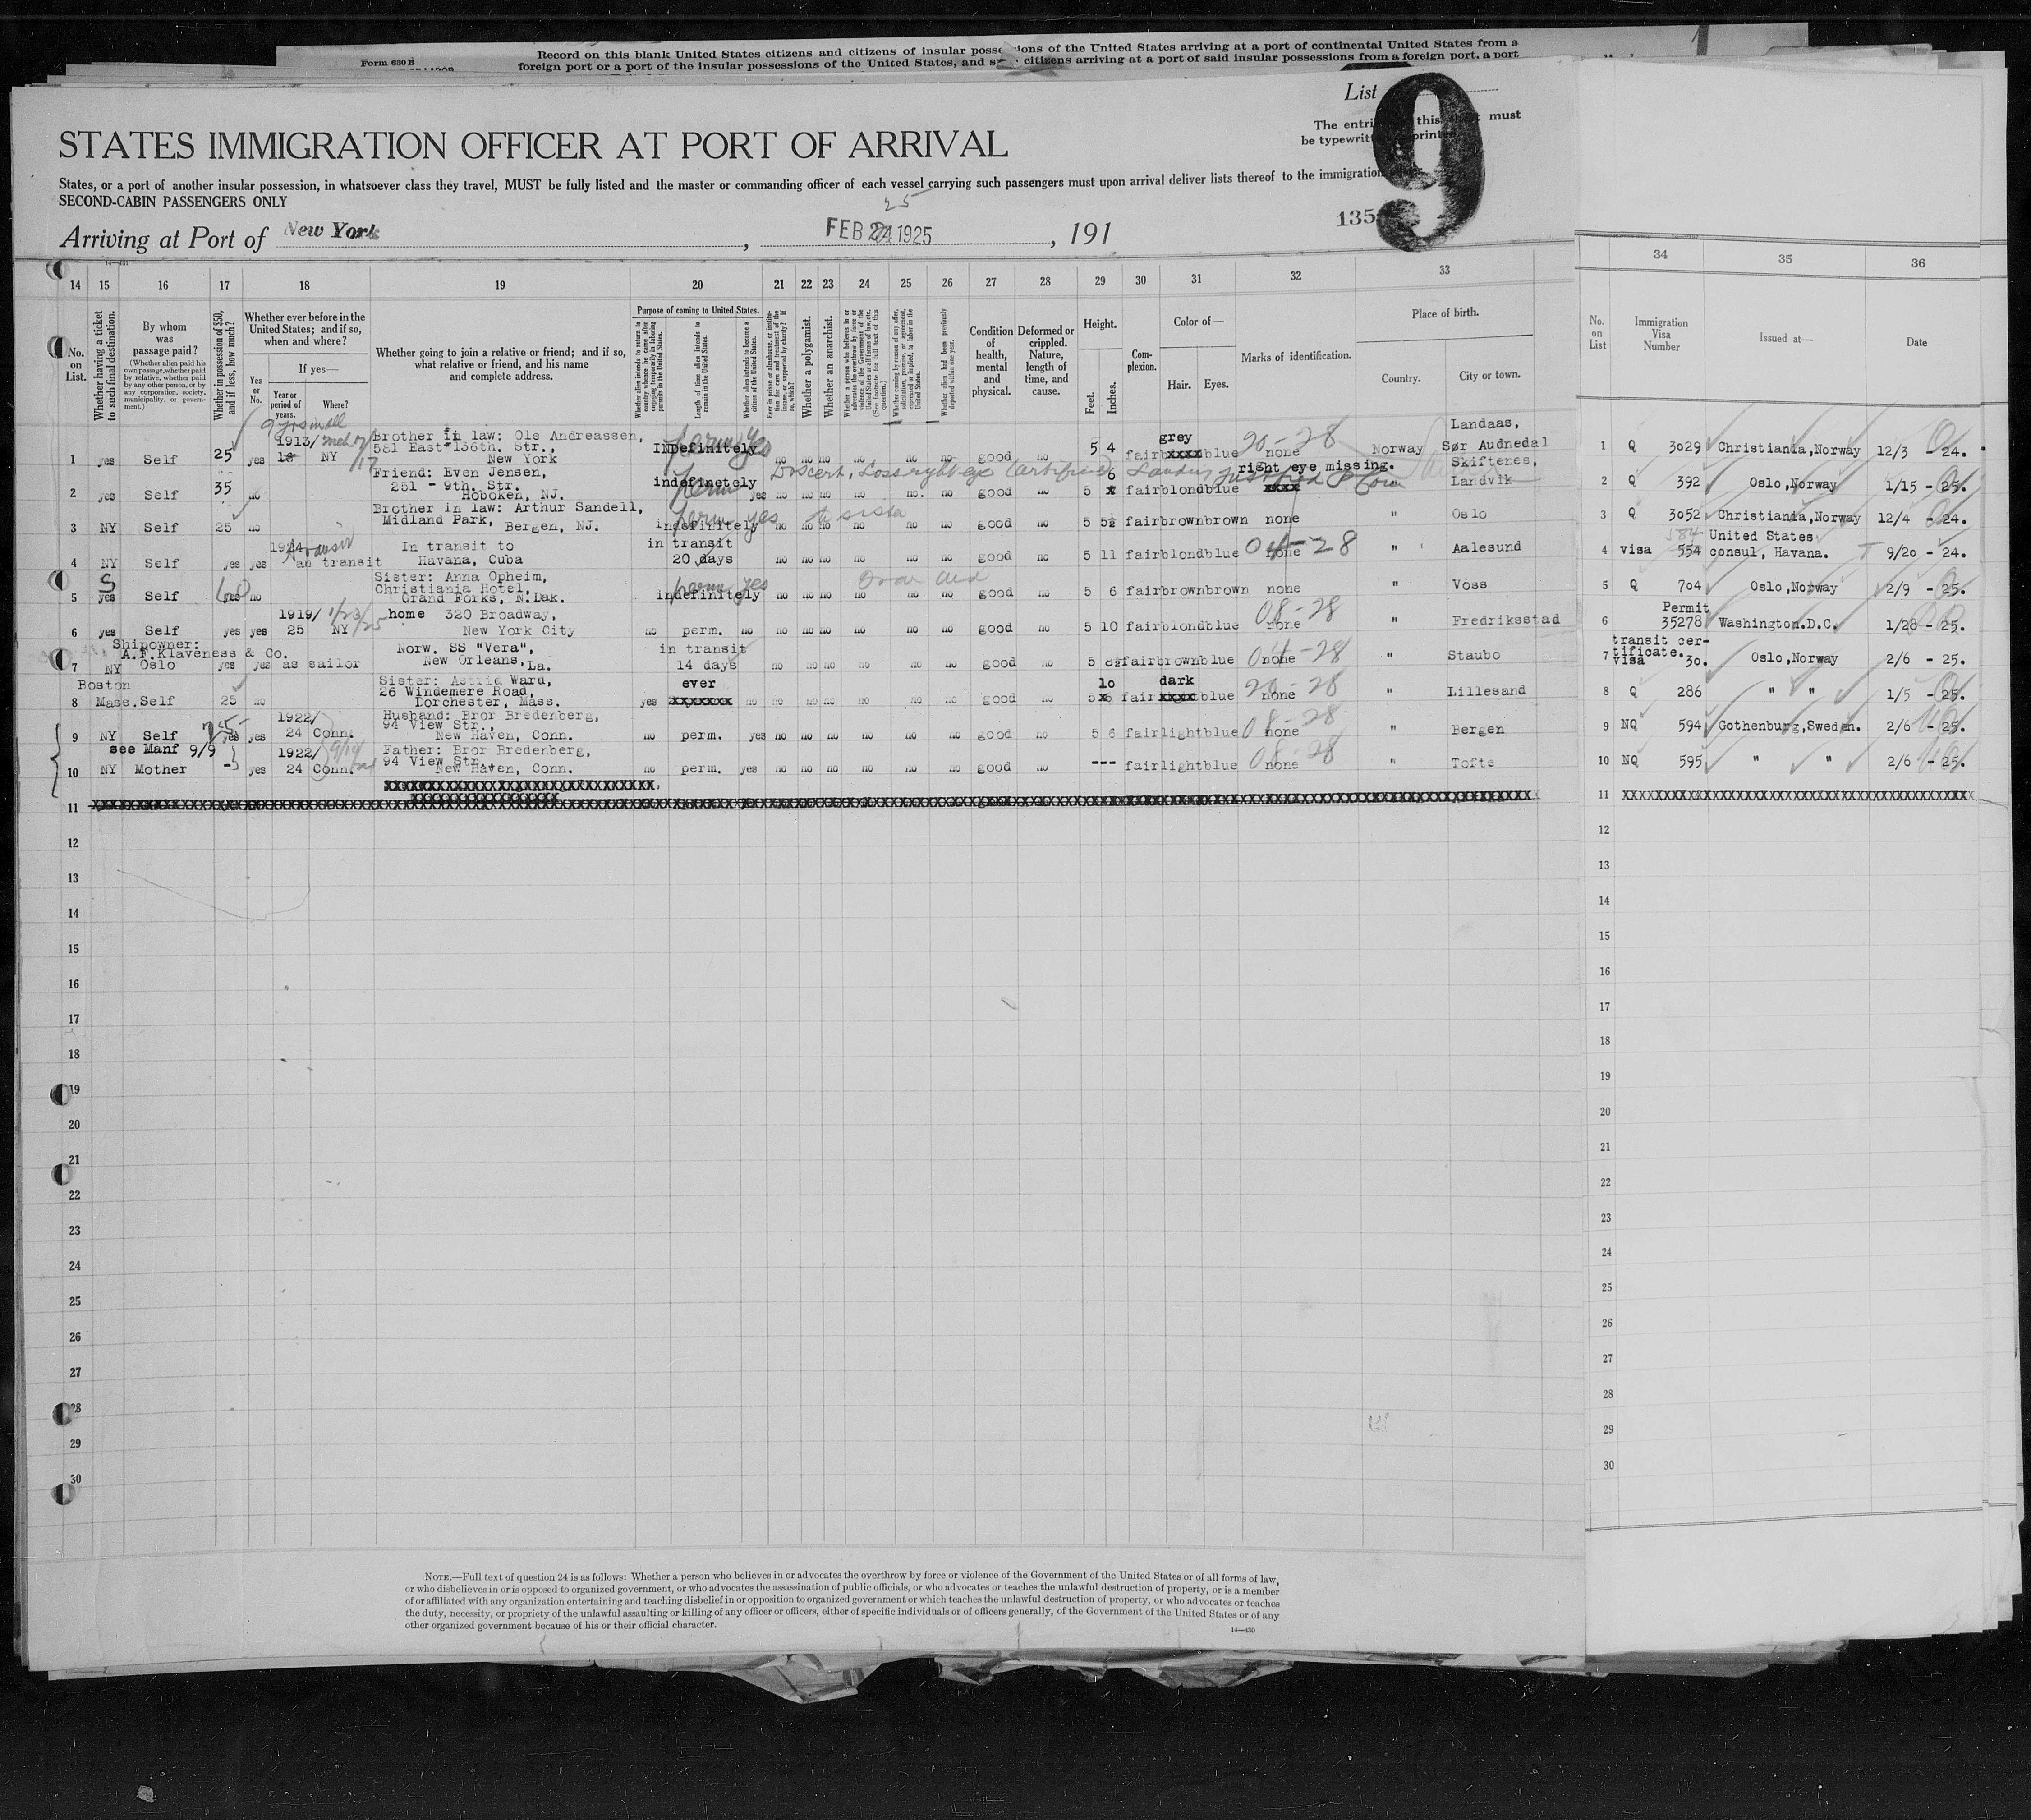 Form 630 B
Record on this blank United States citizens and citizens of insular possessions of the United States arriving at a port of continental United States from a
foreign port or a port of the insular possessions of the United States, and citizens arriving at a port of said insular possessions from a foreign port, a port
List
9
The entries this must
be typewritten printed
STATES IMMIGRATION OFFICER AT PORT OF ARRIVAL
States, or a port of another insular possession, in whatsoever class they travel, MUST be fully listed and the master or commanding officer of each vessel carrying such passengers must upon arrival deliver lists thereof to the immigration
SECOND-CABIN PASSENGERS ONLY
25
135
Arriving at Port of New York, FEB 24 1925, 191
14 15 16 17 18 19 20 21 22 23 24 25 26 27 28 29 30 31 32 33 34 35 36
No. on List.
Whether having a ticket to such final destination.
By whom was passage paid?
(Whether alien paid his own passage, whether paid by relative, whether paid by any other person, or by any corporation, society, municipality, or government.)
Whether in possession of $50, and if less, how much?
Whether ever before in the United States; and if so, when and where?
Yes or No.
If yes—
Year or period of years.
Where?
Whether going to join a relative or friend; and if so, what relative or friend, and his name and complete address.
Purpose of coming to United States.
Whether alien intends to return to country whence he came after engaging temporarily in laboring pursuits in the United States.
Length of time alien intends to remain in the United States.
Whether alien intends to become a citizen of the United States.
Whether a polygamist.
Whether an anarchist.
Condition of health, mental and physical.
Deformed or crippled. Nature, length of time, and cause.
Height.
Feet.
Inches.
Complexion.
Color of—
Hair.
Eyes.
Marks of identification.
Place of birth.
Country.
City or town.
No. on List
Immigration Visa Number
Issued at—
Date
9 yrs in all
1913/ Brother in law: Ole Andreassen, grey 20-28 Landaas,
581 East 136th. Str., Sør Audnedal
1 yes Self 25 yes 18 NY New York INDefinitely perm yes no no no no no no good no 5 4 fair xxxx blue none Norway 1 Q 3029 Christiania, Norway 12/3 - 24.
Friend: Even Jensen, right eye missing. Skiftenes,
251 - 9th. Str. indefinetely
2 yes Self 35 no Hoboken, NJ. perm yes no no no no no. no good no 5 6 fair blond blue xxxx " Landvik 2 Q 392 Oslo, Norway 1/15 - 25.
Brother in law: Arthur Sandell, perm yes to sister
3 NY Self 25 no Midland Park, Bergen, NJ. indefinitely no no no no no no good no 5 5½ fair brown brown none " Oslo 3 Q 3052 Christiania, Norway 12/4 - 24.
1924 transit In transit to in transit 04-28 584 United States
4 NY Self yes yes an transit Havana, Cuba 20 days no no no no no no good no 5 11 fair blond blue none " Aalesund 4 visa 554 consul, Havana. 9/20 - 24.
S Sister: Anna Opheim, perm yes
Christiania Hotel,
5 yes Self yes no Grand Forks, N. Dak. indefinitely no no no no no no good no 5 6 fair brown brown none " Voss 5 Q 704 Oslo, Norway 2/9 - 25.
1919/ 1/23/25 home 320 Broadway, 08-28 Permit
6 yes Self yes yes 25 NY New York City no perm. no no no no no no no good no 5 10 fair blond blue none " Fredriksstad 6 35278 Washington. D.C. 1/28 - 25.
Shipowner: Norw. SS "Vera", in transit transit certificate.
A.F. Klaveness & Co.
7 NY Oslo yes yes as sailor New Orleans, La. 14 days no no no no no no good no 5 8½ fair brown blue none 04-28 " Staubo 7 visa 30. Oslo, Norway 2/6 - 25.
Boston Sister: Astrid Ward, ever 10 dark 20-28
26 Windemere Road,
8 Mass. Self 25 no Dorchester, Mass. yes xxxxxxx no no no no no no no good no 5 x fair xxxx blue none " Lillesand 8 Q 286 " " 1/5 - 25.
1922/ Husband: Bror Bredenberg, 08-28
94 View Str.,
9 NY Self yes yes 24 Conn. New Haven, Conn. no perm. yes no no no no no no good no 5 6 fair light blue none " Bergen 9 NQ 594 Gothenburg, Sweden. 2/6 - 25.
see Manf 9/9 1922/ Father: Bror Bredenberg, 08-28
94 View Str.,
10 NY Mother - yes 24 Conn. New Haven, Conn. no perm. yes no no no no no no good no --- fair light blue none " Tofte 10 NQ 595 " " 2/6 - 25.
11 11
12 12
13 13
14 14
15 15
16 16
17 17
18 18
19 19
20 20
21 21
22 22
23 23
24 24
25 25
26 26
27 27
28 28
29 29
30 30
NOTE.—Full text of question 24 is as follows: Whether a person who believes in or advocates the overthrow by force or violence of the Government of the United States or of all forms of law,
or who disbelieves in or is opposed to organized government, or who advocates the assassination of public officials, or who advocates or teaches the unlawful destruction of property, or is a member
of or affiliated with any organization entertaining and teaching disbelief in or opposition to organized government or which teaches the unlawful destruction of property, or who advocates or teaches
the duty, necessity, or propriety of the unlawful assaulting or killing of any officer or officers, either of specific individuals or of officers generally, of the Government of the United States or of any
other organized government because of his or their official character.
14—430